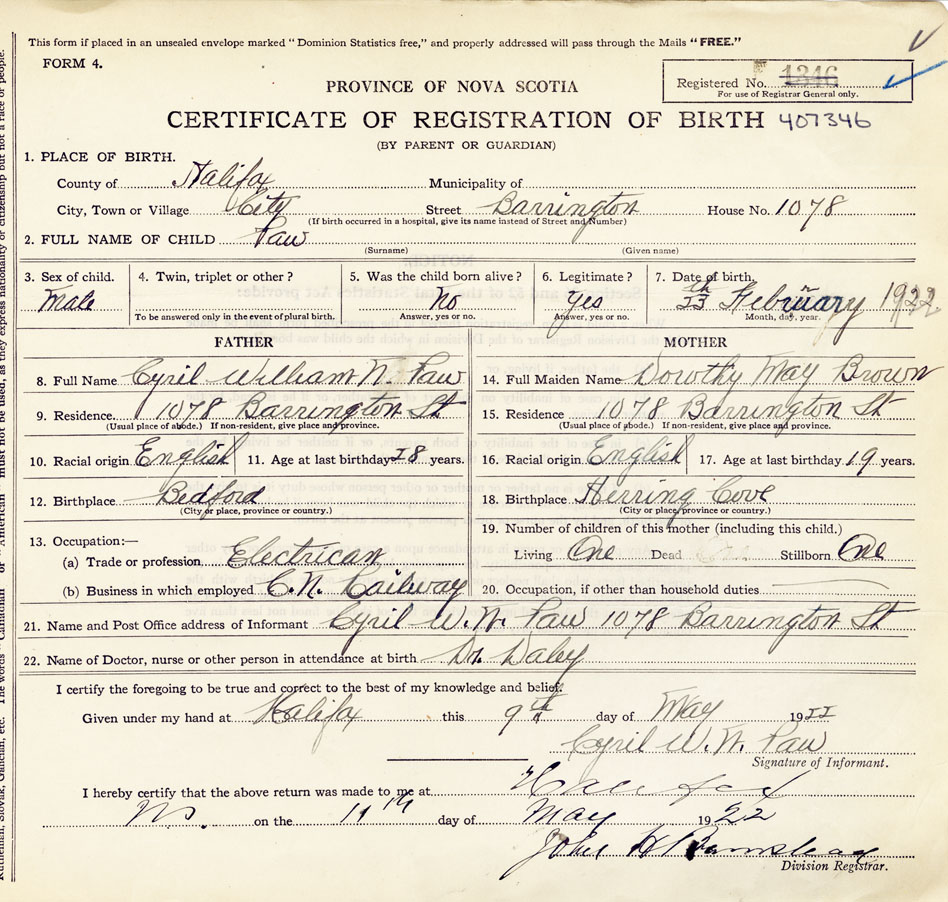 This form if placed in an unsealed envelope marked "Dominion Statistics free," and properly addressed will pass through the Mails "FREE."
FORM 4.
Registered No. 1346
For use of Registrar General only.
PROVINCE OF NOVA SCOTIA
CERTIFICATE OF REGISTRATION OF BIRTH 407346
(BY PARENT OR GUARDIAN)
1. PLACE OF BIRTH.
County of Halifax Municipality of
City, Town or Village City Street Barrington House No. 1078
(If birth occurred in a hospital, give its name instead of Street and Number)
2. FULL NAME OF CHILD Paw
(Surname) (Given name)
3. Sex of child. 4. Twin, triplet or other? 5. Was the child born alive? 6. Legitimate? 7. Date of birth.
Male No yes th February 1922
To be answered only in the event of plural birth. Answer, yes or no. Answer, yes or no. Month, day, year.
FATHER MOTHER
8. Full Name Cyril William N. Paw 14. Full Maiden Name Dorothy May Brown
9. Residence 1078 Barrington St 15. Residence 1078 Barrington St
(Usual place of abode.) If non-resident, give place and province. (Usual place of abode.) If non-resident, give place and province.
10. Racial origin English 11. Age at last birthday I8 years. 16. Racial origin English 17. Age at last birthday 19 years.
12. Birthplace Bedford 18. Birthplace Herring Cove
(City or place, province or country.) (City or place, province or country.)
13. Occupation:— 19. Number of children of this mother (including this child.)
(a) Trade or profession Electrican Living One Dead Stillborn One
(b) Business in which employed C.N. Railway 20. Occupation, if other than household duties
21. Name and Post Office address of Informant Cyril W. N. Paw 1078 Barrington St
22. Name of Doctor, nurse or other person in attendance at birth Dr. Daley
I certify the foregoing to be true and correct to the best of my knowledge and belief.
Given under my hand at Halifax this 9th day of May 19II
Cyril W. N. Paw
Signature of Informant.
I hereby certify that the above return was made to me at Halifax
N.S. on the 11th day of May 1922
John H Barnstead
Division Registrar.